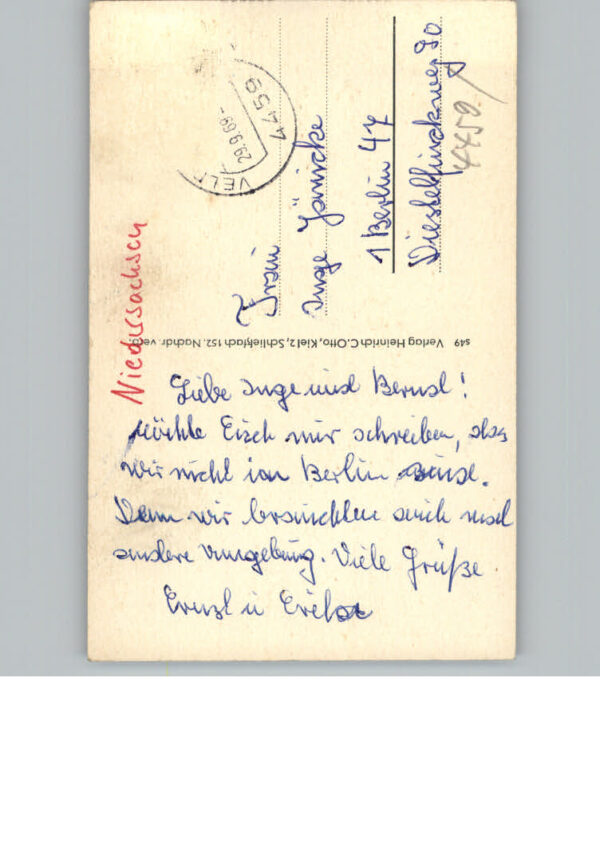 Niedersachsen
4459
29.9.69
VEL
Frau
Inge Jänicke
1 Berlin 47
4459
s49 Verlag Heinrich C. Otto, Kiel 2, Schließfach 152. Nachdr. verb.
Liebe Inge und Bernd!
Möchte Euch nur schreiben, das
wir nicht in Berlin sind.
Denn wir brauchten auch mal
andere Umgebung. Viele Grüße.
Ernst u